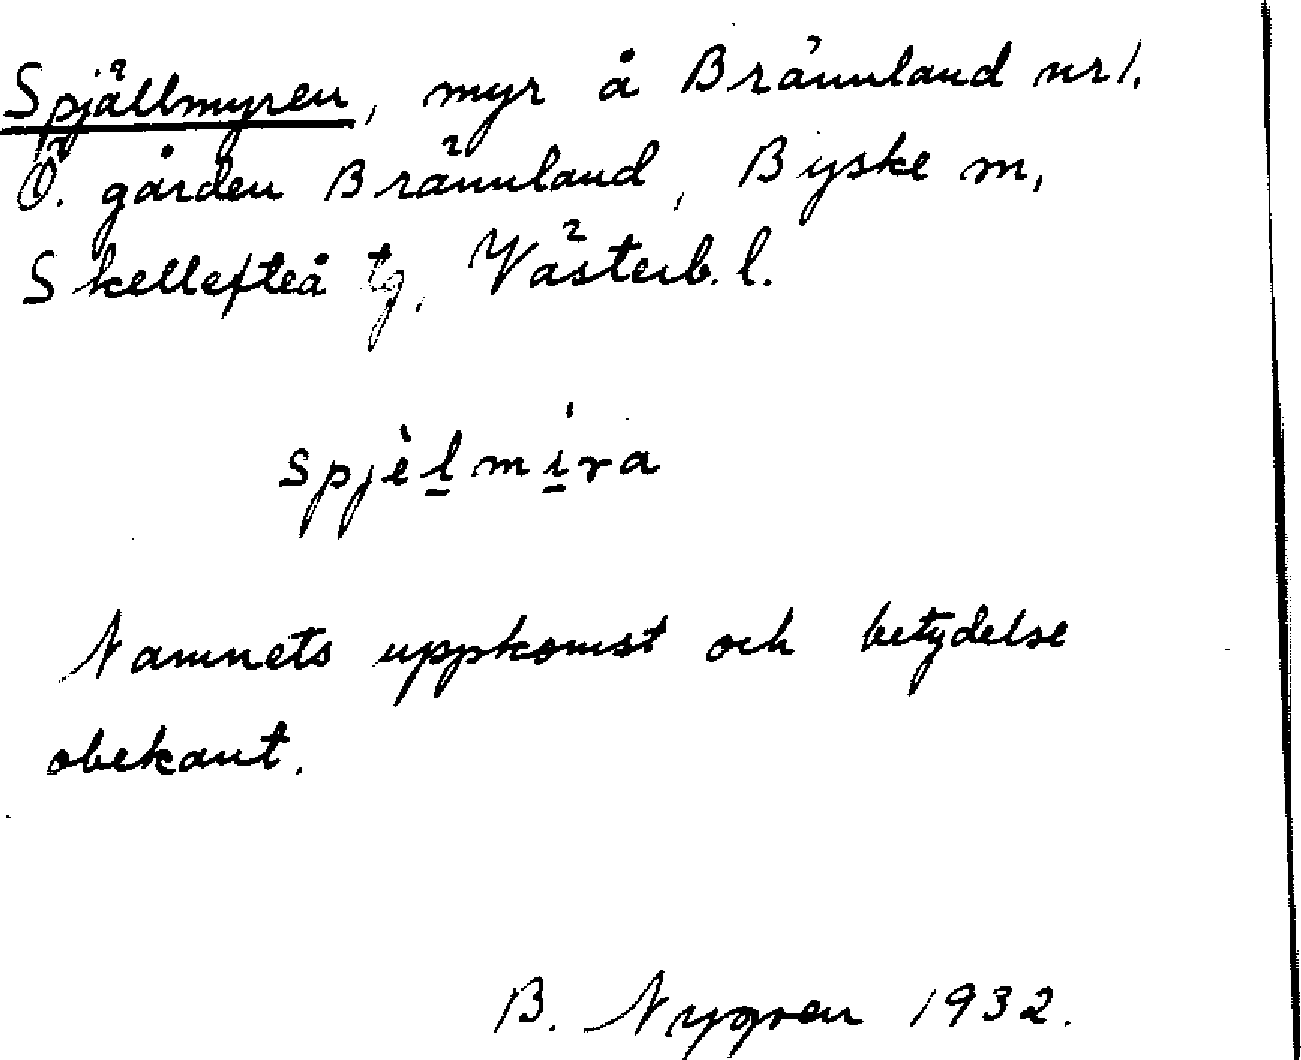 Spjällmyren, myr å Brännland nr 1.
Ö. gården Brännland, Byske sn,
Skellefteå tg, Västerb. l.
spjèlmíra
Namnets uppkomst och betydelse
obekant.
B. Nygren 1932.